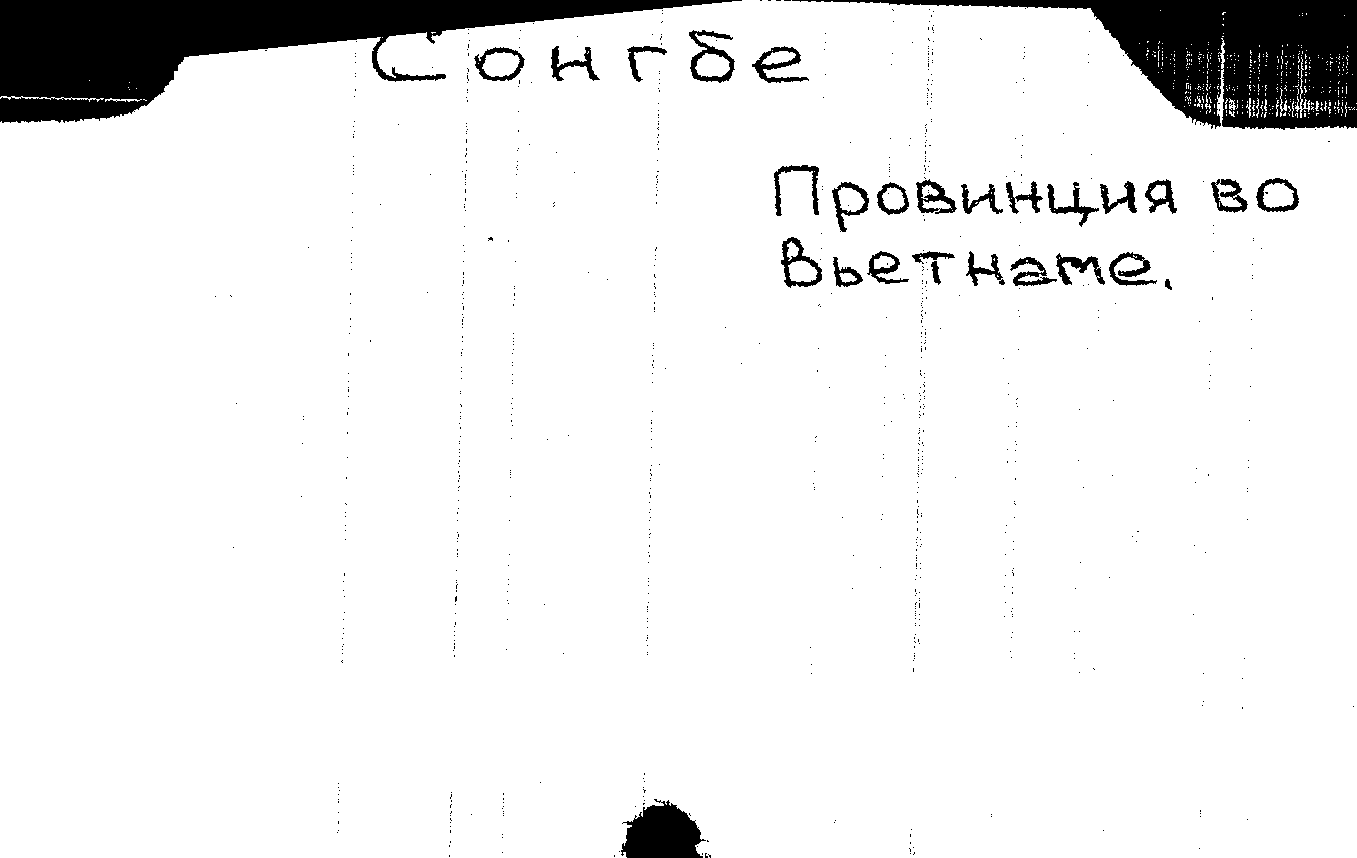 Сонгбе
Провинция во
Вьетнаме.